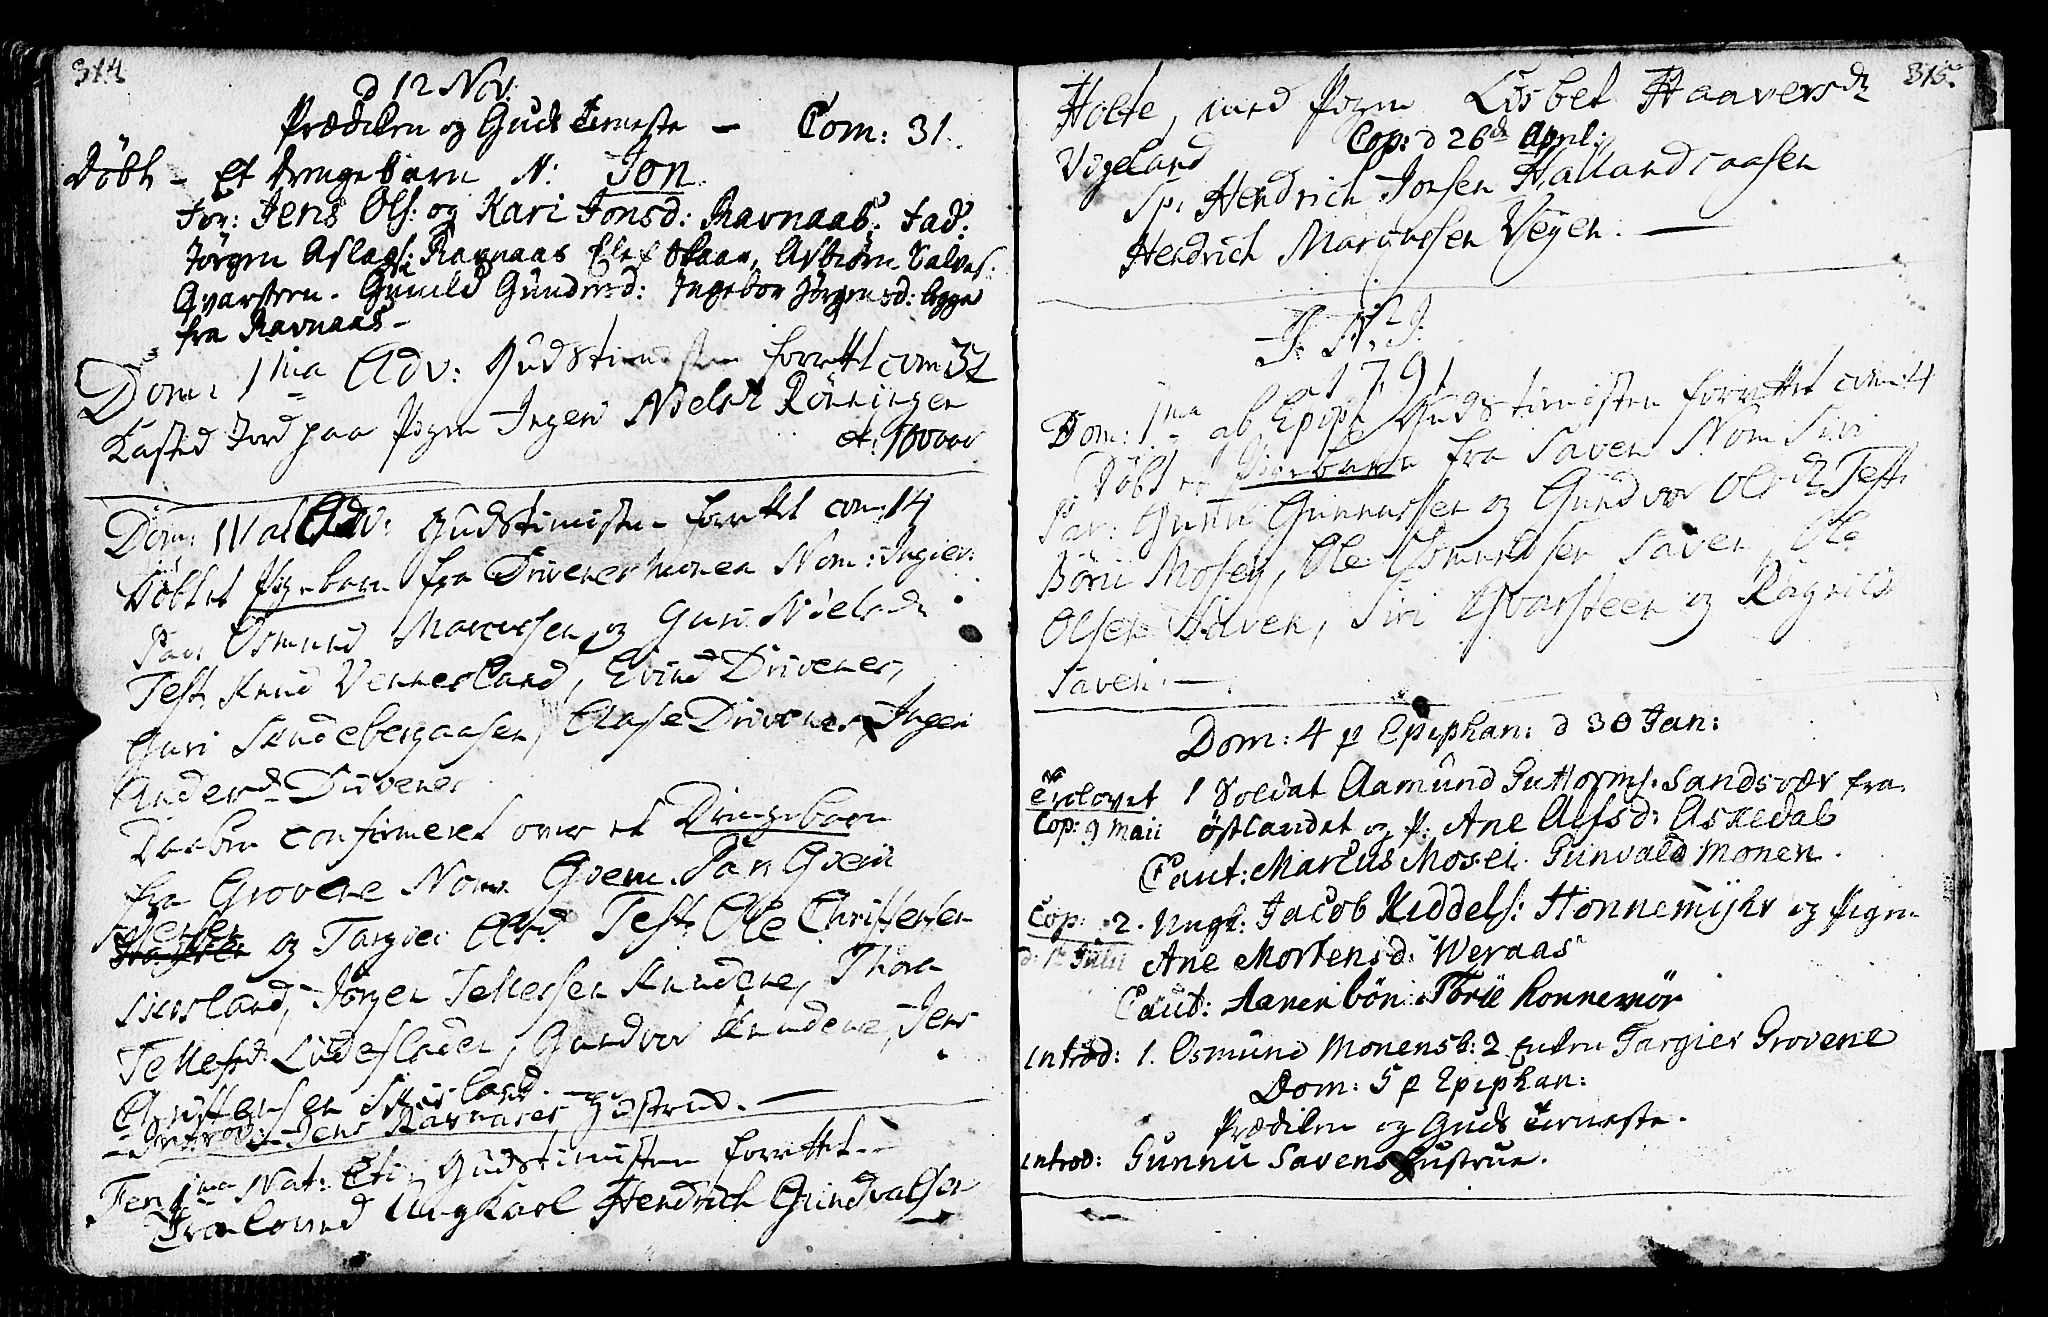 314
d 12 Nov:
Prædiken og Guds tieneste — Com: 31.
Döbt – Et drengebarn N: Jon
For: Jens Ols: og Kari Jonsd: Ravnaas: Fad:
Jörgen Aslags: Ravnaas Elef Skaar, Asbiörn Salves:
Qvarsteen. Gunild Gunders d: Ingebor Jörgensd: begge
fra Ravnaas –
Dom: 1ma Adv: Gudstienesten forrettet com 32
Kasted Jord paa Pigen Inger Niels d. Rönningen
æt: 90 aar
Dom: Adv: Gudstienisten forrettet com: 14
Döbt et Pigebarn fra Drivenesmonen Nom: Ingier:
Par: Osmund Marcussen og Guri Nielsd.
Test: Knud Vennesland, Evind Drivenes,
Guri Aase Drivenes, Inger
Anders d. Drivenes
Daaben confirmeret over et Drengebarn
fra Grovene Nom Gvem. Par: Gvem
og Targier Test: Ole Christensen
Jörgen Tellefsen Knudene, Thora
Tellefsd: Gundvor Knudene, Jens
Christensen
– Introd: Jens Ravnaases Hustrue. —
Fer: 1ma Nat: Gudstienisten forrettet –
Trolovet Ungkarl Hendrich Gundvalsen
315.
Holte, med Pigen Lisbet Haavers d.
Vigeland Cop: d 26de April:
Sp: Hendrich Jonsen Hallandsaasen
Hendrich Marcussen Vegen. —
J: N: J:
1791
Dom: 1ma ab Epiph: Gudstienisten forrettet com: 4
Döbt et Pigebarn fra Saven Nom Siri
Par: Gunnu Gunnussen og Gundvor Ols d. Test:
Börü Mosey, Ole Osmundsen Saven, Ole
Olsen Saven, Siri Qvarsteen og Ragnild
Saven. —
Dom: 4 p Epiphan: d 30 Jan:
Trolovet 1 Soldat Aamund Guttorms: Sandsvær fra
Cop: 9 Maii Östlandet og P: Ane Alfsd: Askedal
Caut: Marcus Mosei. Gunvald Monen.
Cop: 2. Ungk: Jacob Kiddels: Honnemyhr og Pigen
d: 12 Julii Ane Mortensd: Weraas
Caut: Aanen bön: Törie Honnemör
Introd: 1. Osmund Monens k: 2 Enken Targier Grovene
Dom: 5 p Epiphan:
Prædiken og Guds tieneste.
Introd: Gunnu Savens Hustrue.